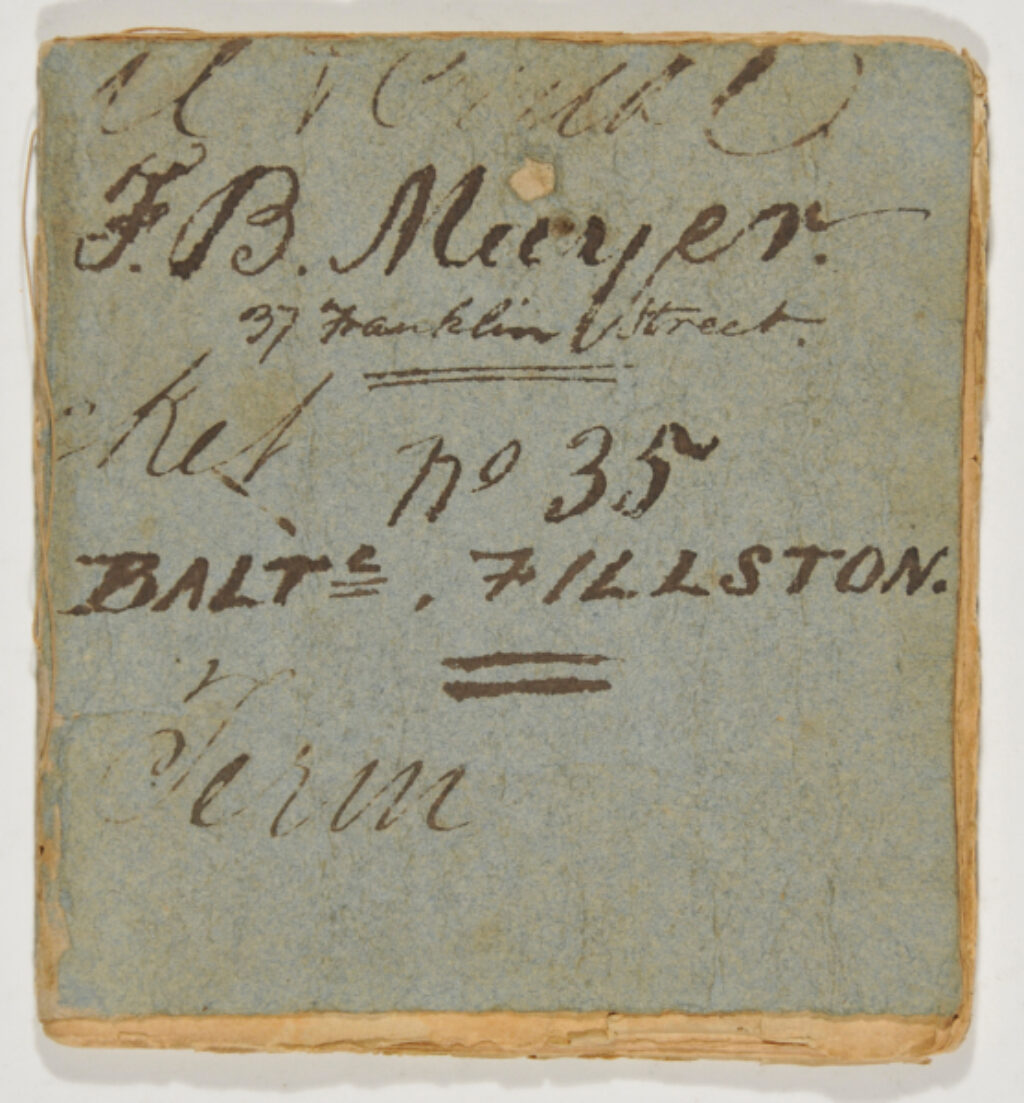 F. B. Mayer.
37 Franklin Street.
ket
no 35
BALTE, FILLSTON.
Term